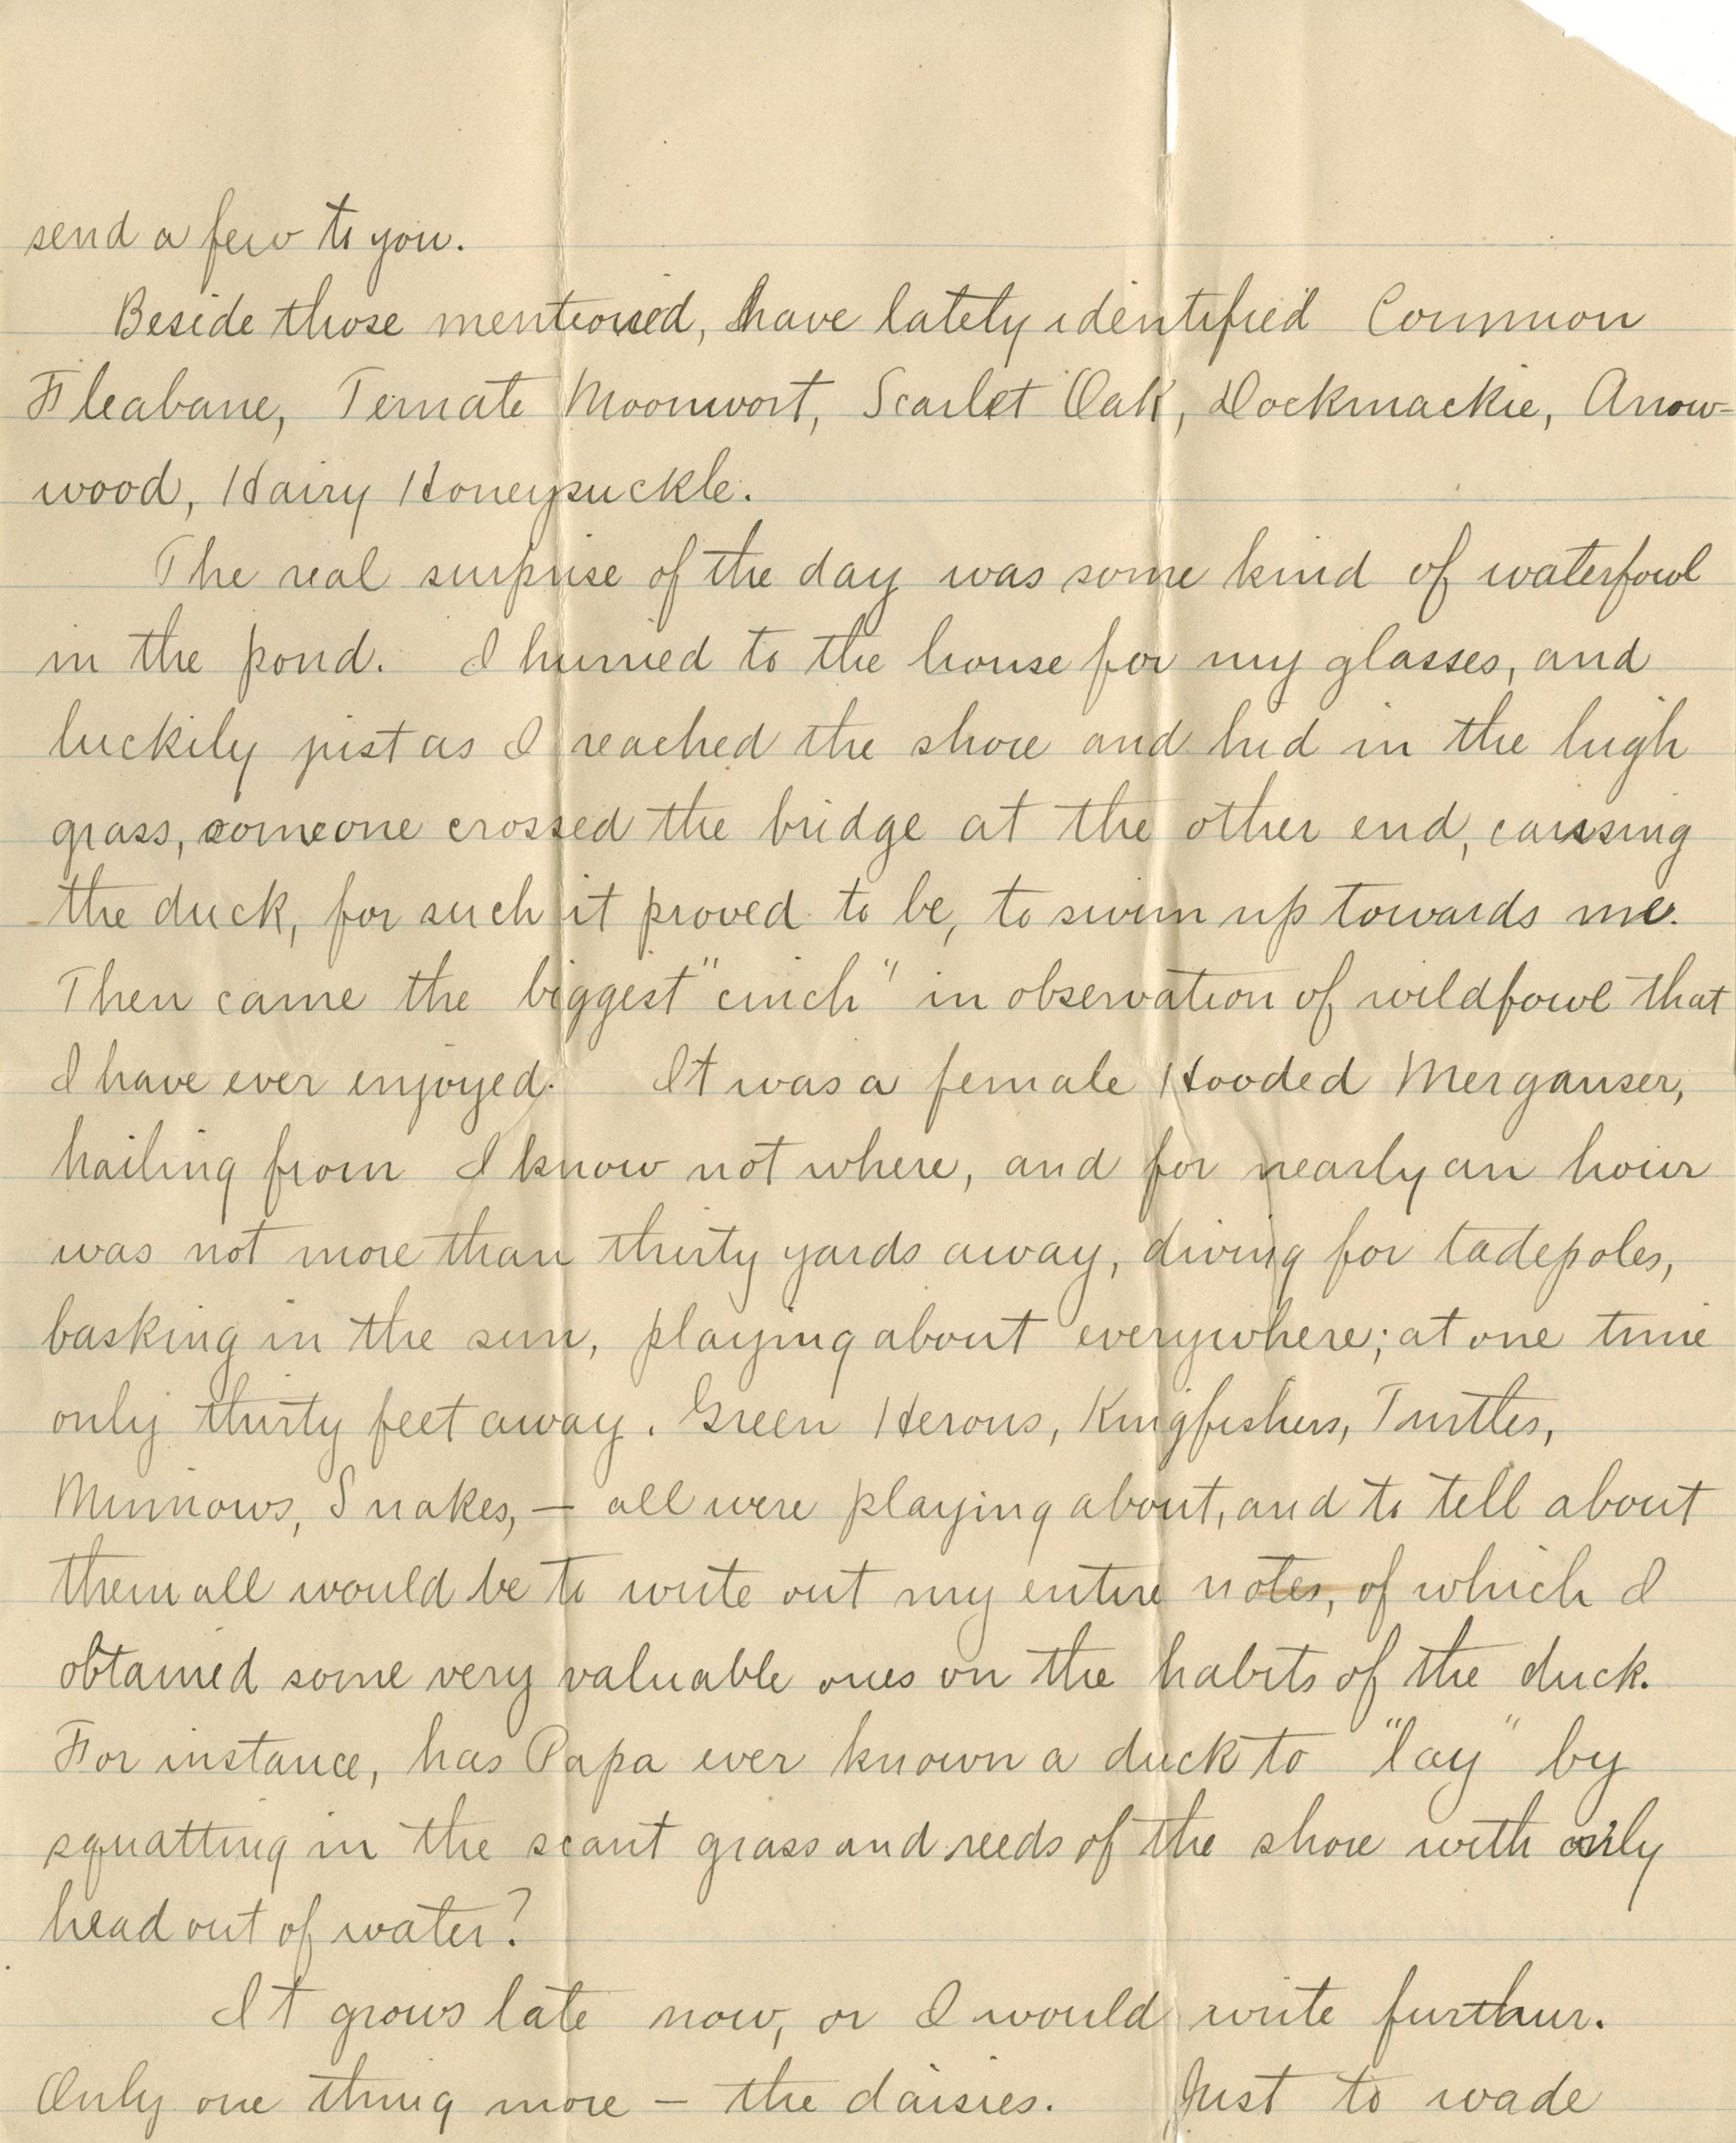 send a few to you.
Beside those mentioned, have lately identified Common
Fleabane, Ternate Moonwort, Scarlet Oak, Dockmackie, Arrow-
wood, Hairy Honeysuckle.
The real surprise of the day was some kind of waterfowl
in the pond. I hurried to the house for my glasses, and
luckily just as I reached the shore and hid in the high
grass, someone crossed the bridge at the other end, caussing
the duck, for such it proved to be, to swim up towards me.
Then came the biggest "cinch" in observation of wildfowl that
I have ever enjoyed. It was a female Hooded Merganser,
hailing from I know not where, and for nearly an hour
was not more than thirty yards away, diving for tadepoles,
basking in the sun, playing about everywhere; at one time
only thirty feet away. Green Herons, Kingfishers, Turtles,
Minnows, Snakes, — all were playing about, and to tell about
them all would be to write out my entire notes, of which I
obtained some very valuable ones on the habits of the duck.
For instance, has Papa ever known a duck to "lay" by
squatting in the scant grass and reeds of the shore with only
head out of water?
It grows late now, or I would write furthur.
Only one thing more — the daisies. Just to wade